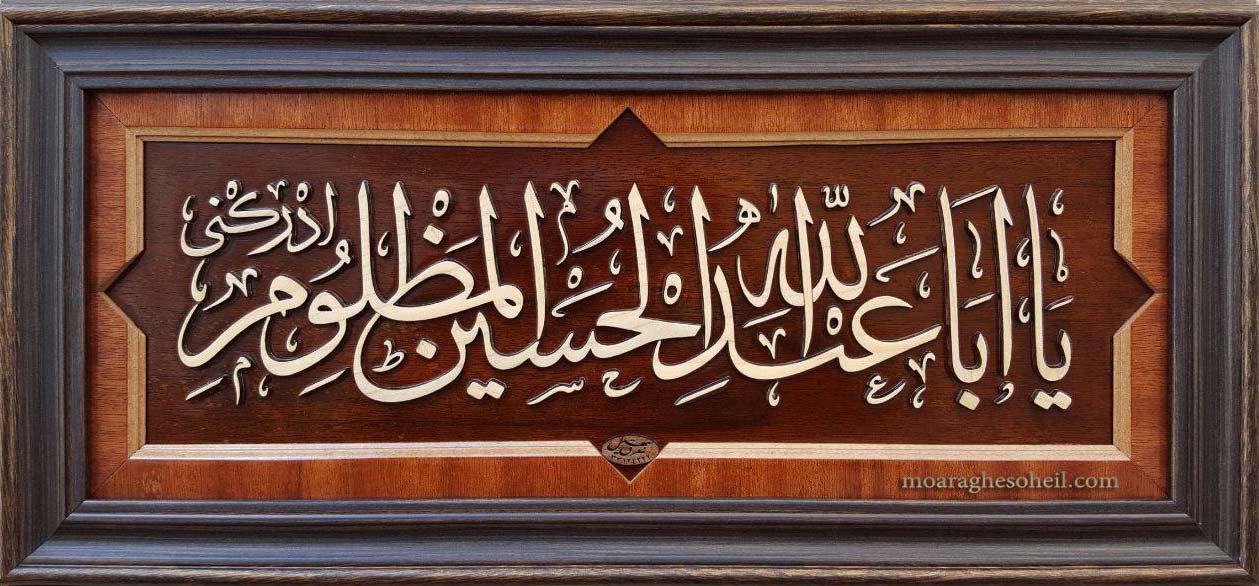 یا ابا عبدالله الحسین المظلوم ادرکنی
moaraghesoheil.com